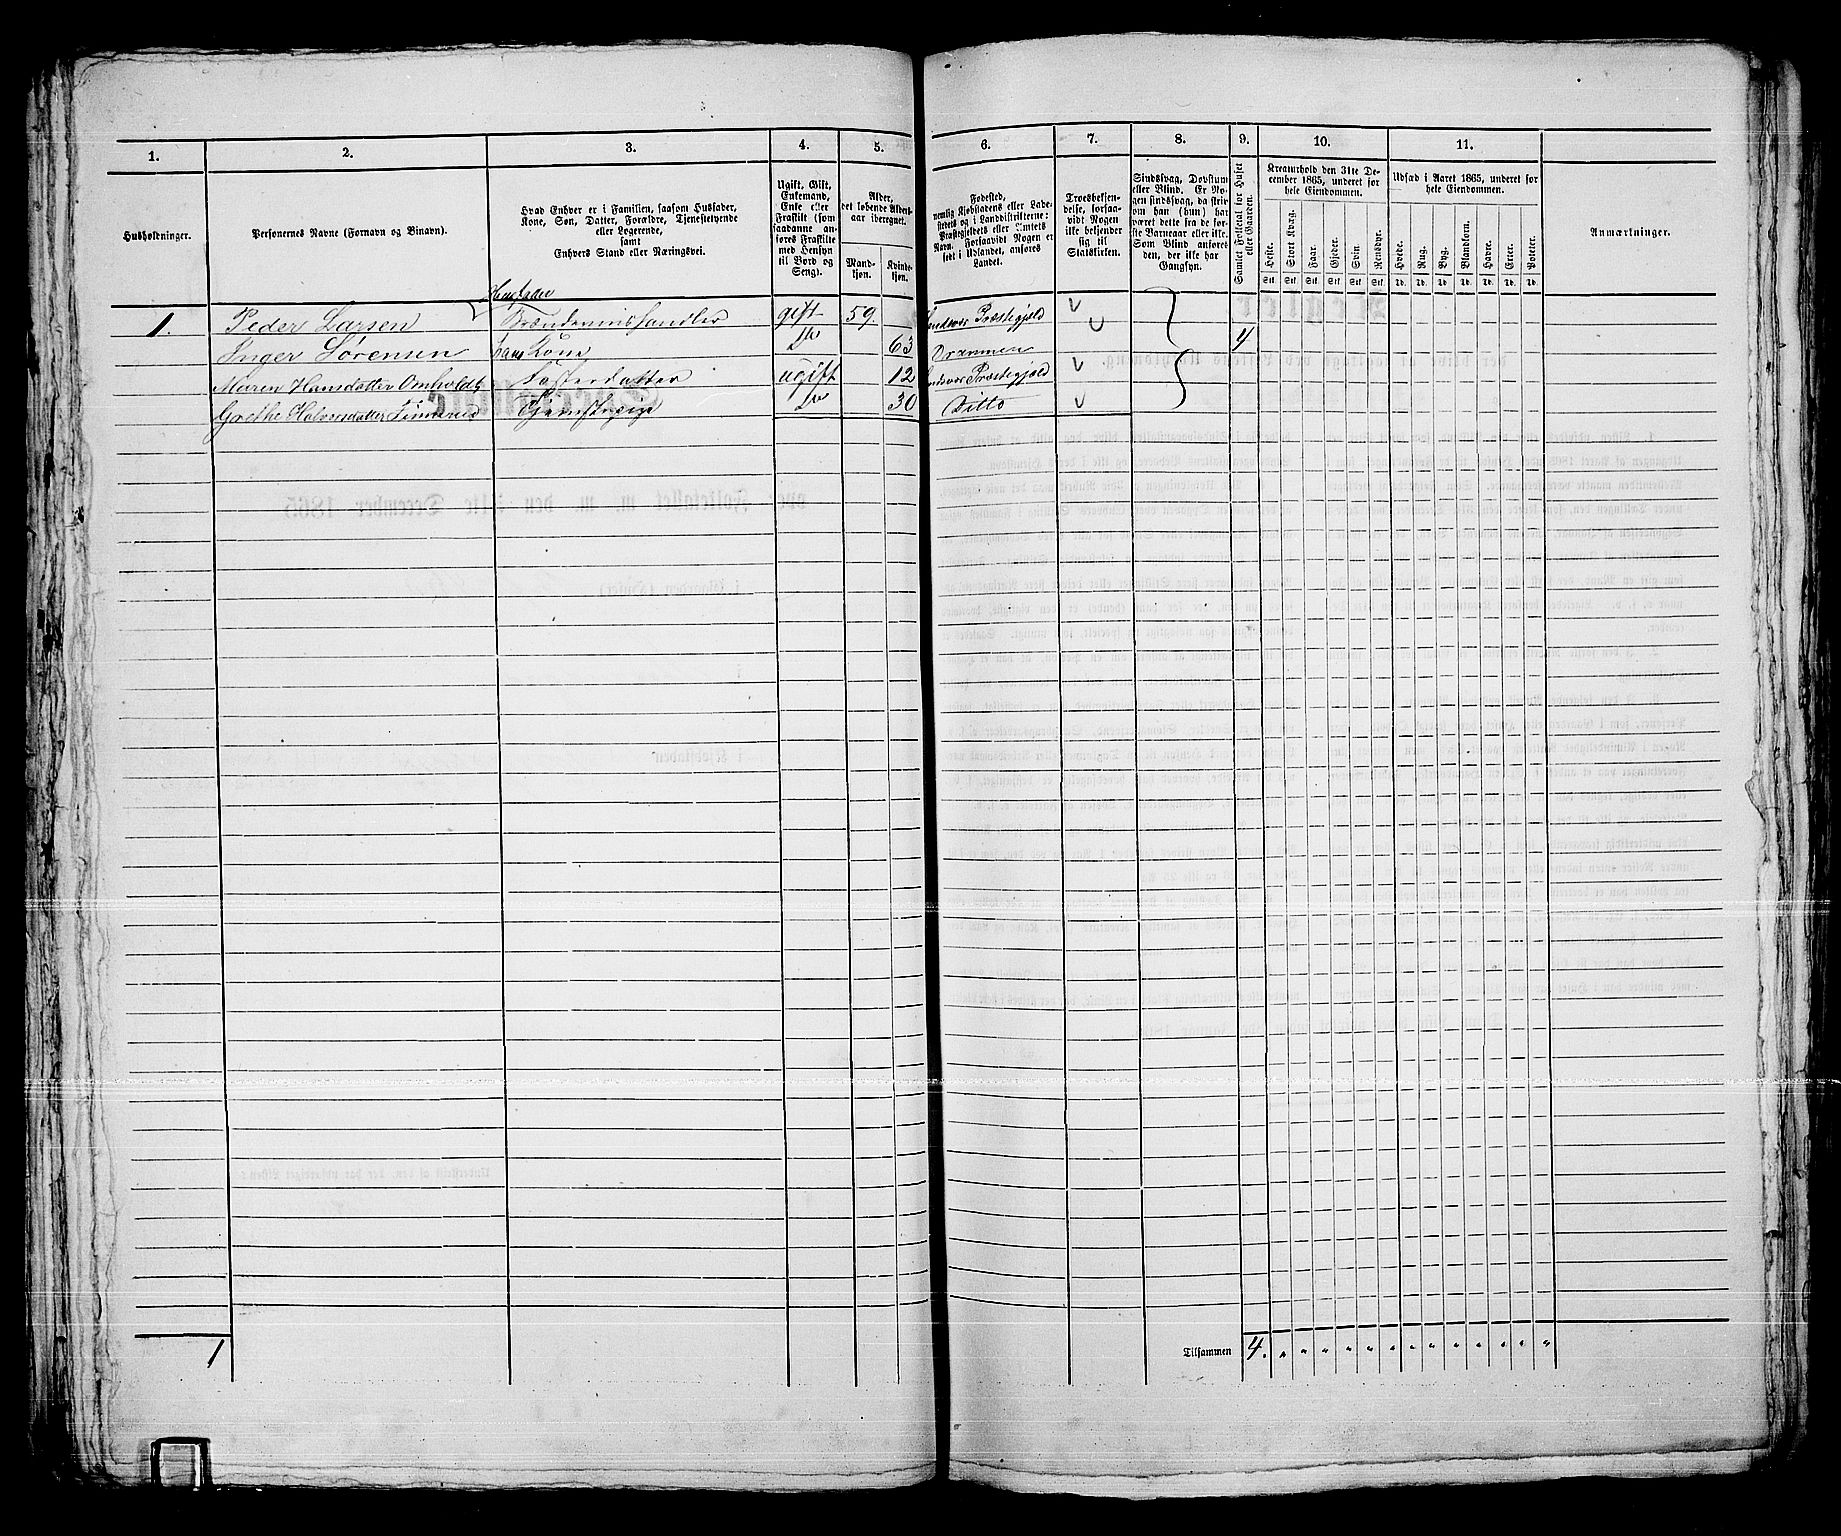 1. 2. 3. 4. 5. 6. 7. 8. 9. 10. 11.
Husholdninger.
Personernes Navne (Fornavn og Binavn).
Hvad Enhver er i Familien, saasom Husfader,
Kone, Søn, Datter, Forældre, Tjenestetyende
eller Logerende,
samt
Enhvers Stand eller Næringsvei.
Ugift, Gift,
Enkemand,
Enke eller
Fraskilt (som
saadanne an-
føres Fraskilte
med Hensyn
til Bord og
Seng).
Alder,
det løbende Alders-
aar iberegnet.
Mand-
kjøn.
Kvinde-
kjøn.
Fødested,
nemlig Kjøbstadens eller Lade-
stedets og i Landdistrikterne:
Præstegjeldets eller Amtets
Navn. Forsaavidt Nogen er
født i Udlandet, anføres
Landet.
Troesbekjen-
delse, forsaa-
vidt Nogen
ikke bekjender
sig til
Statskirken.
Sindssvag, Døvstum
eller Blind. Er No-
gen sindssvag, da skriv-
om han (hun) har
været dette fra de før-
ste Barneaar eller ikke.
Som Blind anføres
den, der ikke har
Gangsyn.
Samlet Folketal for Huset
eller Gaarden.
Kreaturhold den 31te De-
cember 1865, underet for
hele Eiendommen.
Heste. Stort Kvæg. Faar. Gjeder. Svin. Rensdyr.
Stk. Stk. Stk. Stk. Stk. Stk.
Udsæd i Aaret 1865, underet for
hele Eiendommen.
Hvede. Rug. Byg. Blandkorn. Havre. Erter. Poteter.
Td. Td. Td. Td. Td. Td. Td.
Anmærkninger.
Husfader
1. Peder Larsen Brændevinshandler gift 59. Præstegjeld
Inger Sørensen hans Kone Do 63 Drammen 4
Maren Hansdatter Omholdt Fosterdatter ugift 12 Præstegjeld
Grethe Halvorsdatter Do 30 Ditto
1
Tilsammen 4. " " " " " " " " " " " " "